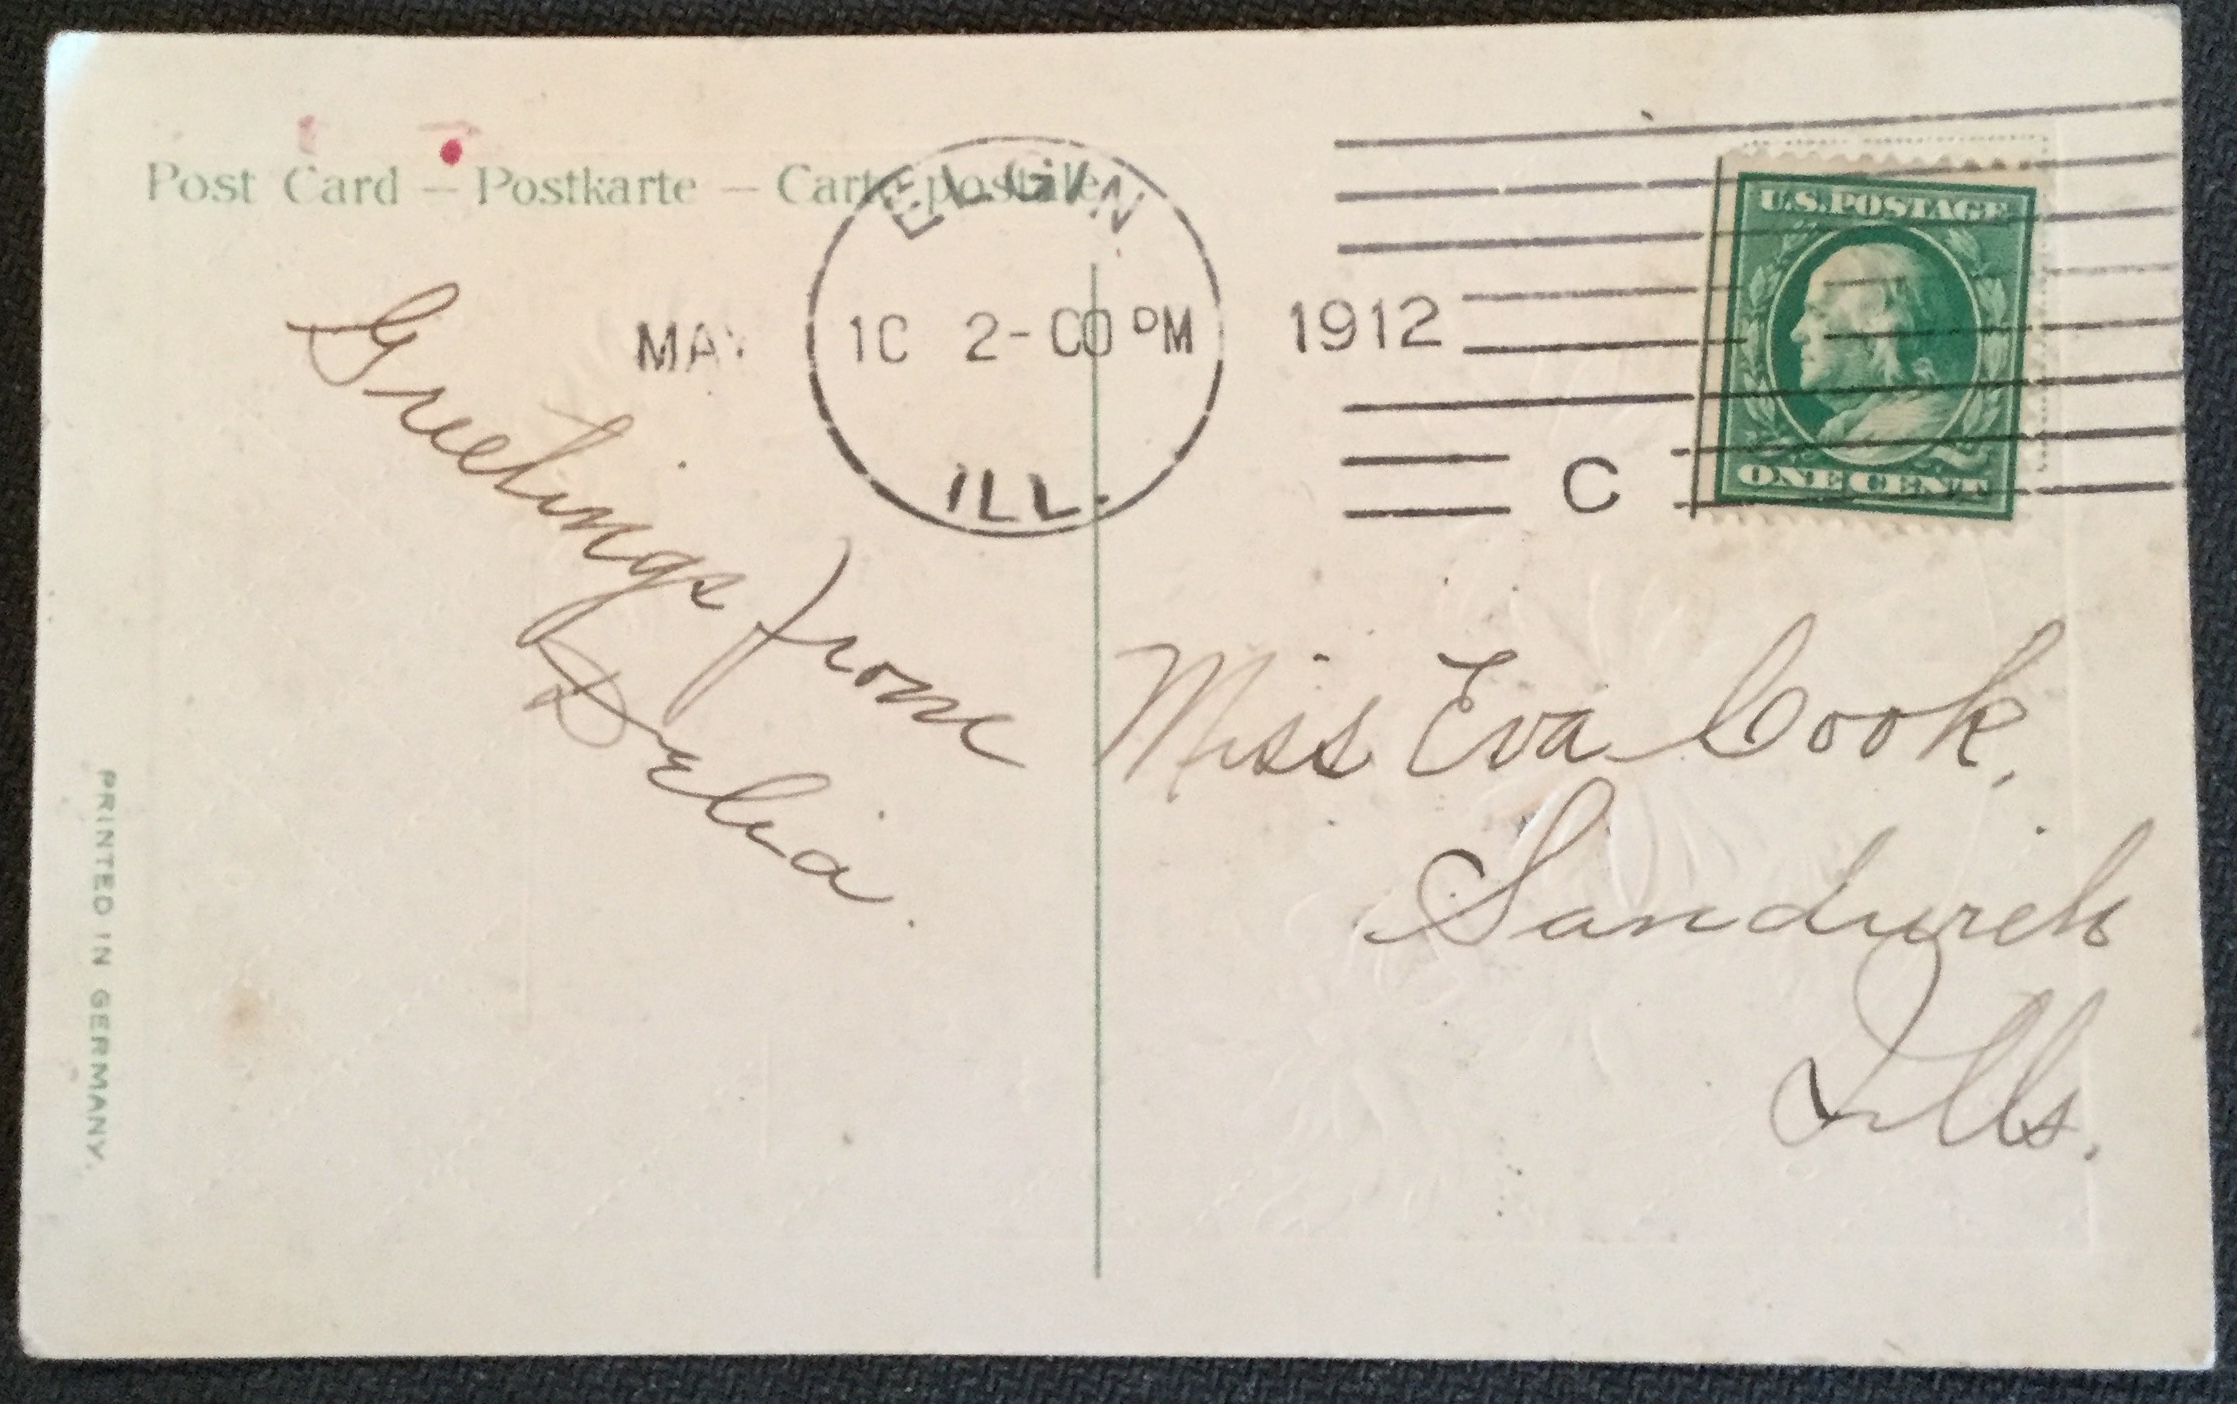 Post Card – Postkarte – Carte postale
ELGIN
MAY 10 2-00 PM 1912
ILL.
C
U.S. POSTAGE
ONE CENT
Greetings from
Delia.
Miss Eva Cook,
Sandwich
Ills.
PRINTED IN GERMANY.